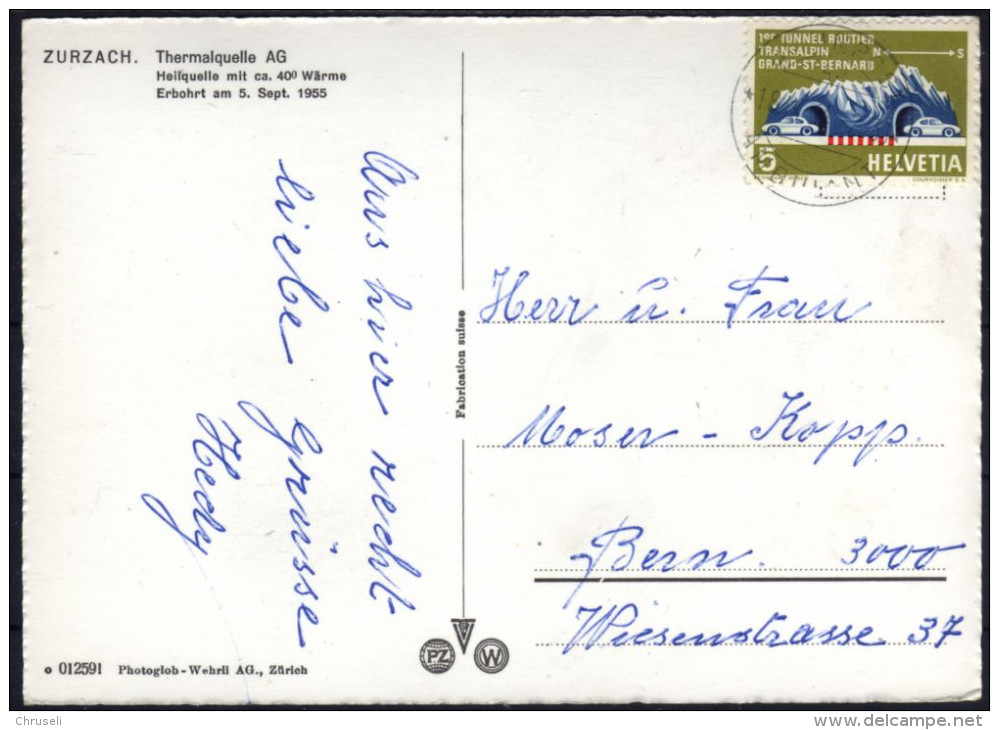 ZURZACH. Thermalquelle AG
Heilquelle mit ca. 40⁰ Wärme
Erbohrt am 5. Sept. 1955
Aus hier recht
liebe Grüsse
Hedy
1er TUNNEL ROUTIER
TRANSALPIN N S
GRAND-ST-BERNARD
5 HELVETIA
COURVOISIER S.A.
Fabrication suisse
Herr u. Frau
Moser - Kopp.
Bern. 3000
Wiesenstrasse 37
PZ W
o 012591 Photoglob-Wehrli AG., Zürich
Chruseli
www.delcampe.net